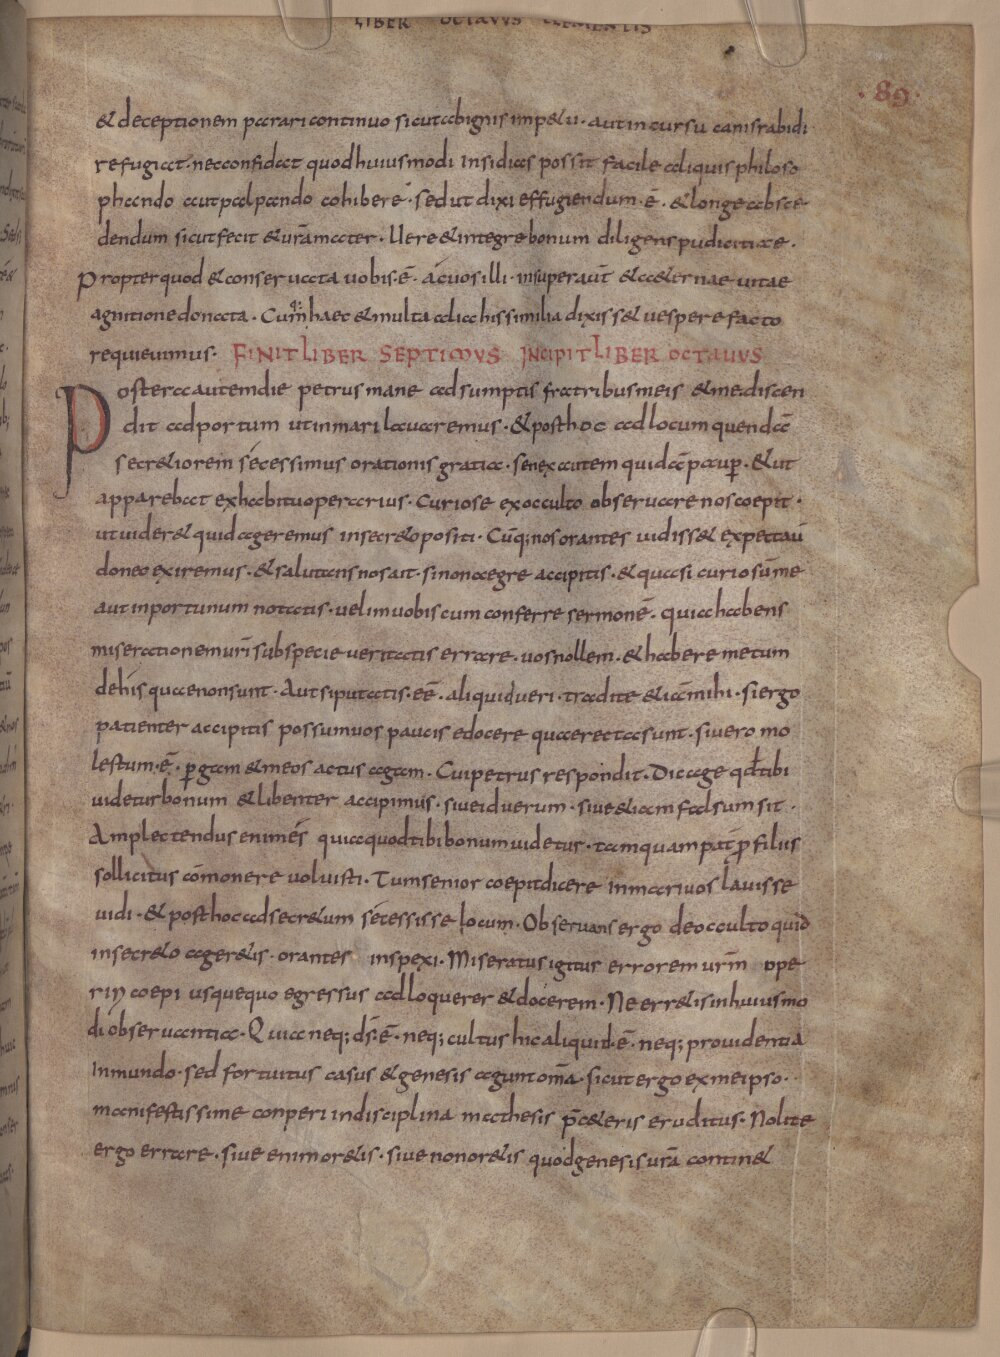 LIBER OCTAVVS CLEMENTIS
· 89 ·
& deceptionem parari continuo sicut ab ignis imp&u · aut incursu canis rabidi
refugiat · nec confidat quod huiusmodi insidias possit facile aliquis philoso
phando aut palpando cohibere · sed ut dixi effugiendum · ē · & longe absce
dendum sicut fecit & urā mater · Uere & integre bonum diligens pudicitiae ·
Propter quod & conseruata uobis · ē · ac uos illi · insuper aūt & ae&ernae uitae
agnitione donata · Cum haec & multa alia his similia dixiss& uespere facto
requieuimus · FINIT LIBER SEPTIMVS INCIPIT LIBER OCTAVVS
Postera autem die petrus mane adsumptis fratribus meis & me discen
dit ad portum ut in mari lauaremus · & post hoc ad locum quendā
secr&iorem secessimus orationis gratia · senex autem quidā paup̄ · & ut
apparebat ex habitu operarius · curiose ex occulto obseruare nos coepit ·
ut uider& quid ageremus in secr&o positi · Cūq; nos orantes uidiss& expectaū
donec exiremus · & salutans nos ait · si non aegre accipitis · & quasi curiosū me
aut inportunum notatis · uelim uobiscum conferre sermonē · quia habens
miserationem urī sub specie ueritatis errare · uos nollem · & habere metum
de his quae non sunt · Aut si putatis · eē · aliquid ueri · tradite & iā mihi · si ergo
patienter accipitis possum uos paucis edocere quae recta sunt · si uero mo
lestum · ē · p̄gam & meos actus agam · Cui petrus respondit · Dic age qđ tibi
uidetur bonum & libenter accipimus · siue id uerum · siue & iam falsum sit ·
Amplectendus enim es quia quod tibi bonum uidetur · tamquam pat̄ p̄ filiis
sollicitus cōmonere uoluisti · Tum senior coepit dicere in mari uos lauisse
uidi · & post hoc ad secr&um secessisse locum · Obseruans ergo de occulto quid
in secr&o ager&is · orantes inspexi · Miseratus igitur errorem urm̄ oppe
riri coepi usquequo egressus adloquerer & docerem · Ne err&is in huiusmo
di obseruantia · Quia neq; ds̄ · ē · neq; cultus hic aliquid · ē · neq; prouidentia
in mundo · sed fortuitus casus & genesis agunt omā · sicut ergo ex me ipso ·
manifestissime conperi in disciplina mathesis p̄ c&eris eruditus · Nolite
ergo errare · siue enim or&is · siue non or&is quod genesis urā contin&